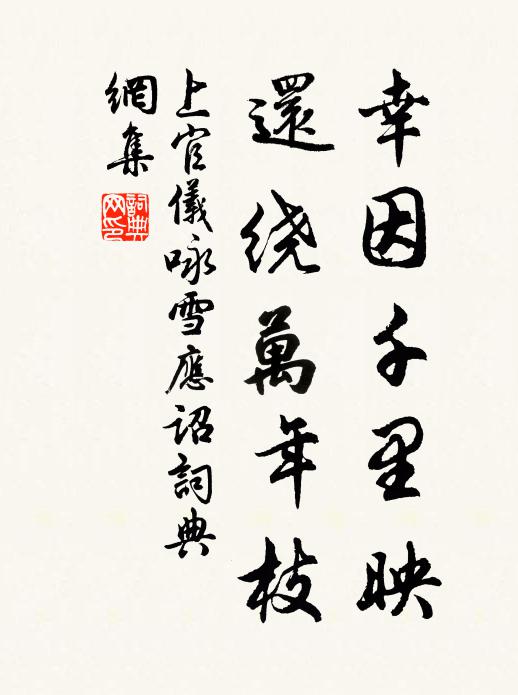 幸因千里映
還绕萬年枝
上官儀咏雪應詔詞典
網集
詞典
网印